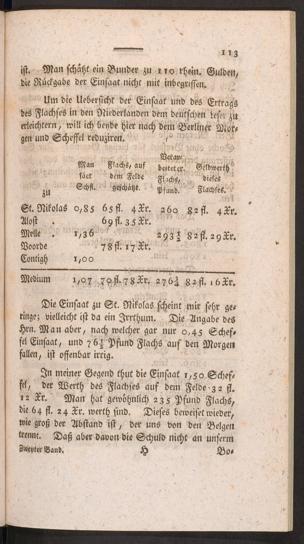 113
ist. Man schätzt ein Bunder zu 110 rhein. Gulden,
die Rückgabe der Einsaat nicht mit inbegriffen.
Um die Uebersicht der Einsaat und des Ertrags
des Flachses in den Niederlanden dem deutschen Leser zu
erleichtern, will ich beyde hier nach dem Berliner Mor-
gen und Scheffel reduziren.
Verar-
Man Flachs, auf beiteter Geldwerth
säet dem Felde Flachs, dieses
zu Schfl. geschätzt. Pfund. Flachses.
St. Nikolas 0,85 65 fl. 4 Xr. 260 82 fl. 4 Xr.
Alost 69 fl. 35 Xr.
Melle 1,36 293½ 82 fl. 29 Xr.
Voorde 78 fl. 17 Xr.
Contigh 1,00
Medium 1,07 70 fl. 78 Xr. 276¾ 82 fl. 16 Xr.
Die Einsaat zu St. Nikolas scheint mir sehr ge-
ringe; vielleicht ist da ein Irrthum. Die Angabe des
Hrn. Man aber, nach welcher gar nur 0,45 Schef-
fel Einsaat, und 76½ Pfund Flachs auf den Morgen
fallen, ist offenbar irrig.
In meiner Gegend thut die Einsaat 1,50 Schef-
fel, der Werth des Flachses auf dem Felde 32 fl.
12 Xr. Man hat gewöhnlich 235 Pfund Flachs,
die 64 fl. 24 Xr. werth sind. Dieses beweiset wieder,
wie groß der Abstand ist, der uns von den Belgen
trennt. Daß aber davon die Schuld nicht an unserm
Zweyter Band. H Bo-